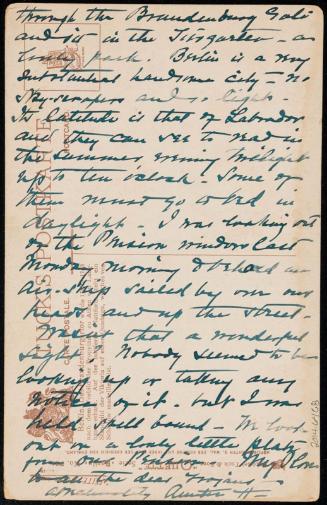 through the Brandenburg Gate
and sit in the Tiergarten - a
lovely park. Berlin is a very
substantial handsome city - no
sky-scrapers and so light.
Its latitude is that of Labrador
and they can see to read in
the summer evening twilight
up to ten oclock. Some of
them must go to bed in
daylight - I was looking out
of the Pension window last
Monday morning & beheld an
Air-Ship sailed by our
and up the street.
that a wonderful
sight. Nobody seemed to be
looking up or taking any
notice of it. but I was
held spell bound - We look
out on a lovely little platz
from our Pension. My love
to all the dear
Auntie H-
POSTKARTE
CARTE POSTALE
POSTCARD
2046468